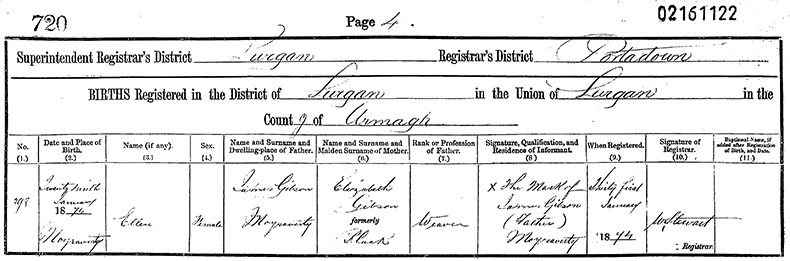 720 Page 4. 02161122
Superintendent Registrar's District Lurgan Registrar's District Portadown
BIRTHS Registered in the District of Lurgan in the Union of Lurgan in the
County of Armagh
No. (1.)
Date and Place of Birth. (2.)
Name (if any). (3.)
Sex. (4.)
Name and Surname and Dwelling-place of Father. (5.)
Name and Surname and Maiden Surname of Mother. (6.)
Rank or Profession of Father. (7.)
Signature, Qualification, and Residence of Informant. (8)
When Registered. (9.)
Signature of Registrar. (10.)
Baptismal Name, if added after Registration of Birth, and Date. (11.)
298
Twenty ninth
January
1874
Moyraverty
Ellen
Female
James Gibson
Moyraverty
Elizabeth
Gibson
formerly
Weaver
X The Mark of
James Gibson
(Father)
Moyraverty
Thirty first
January
1874
W Stewart
Registrar.